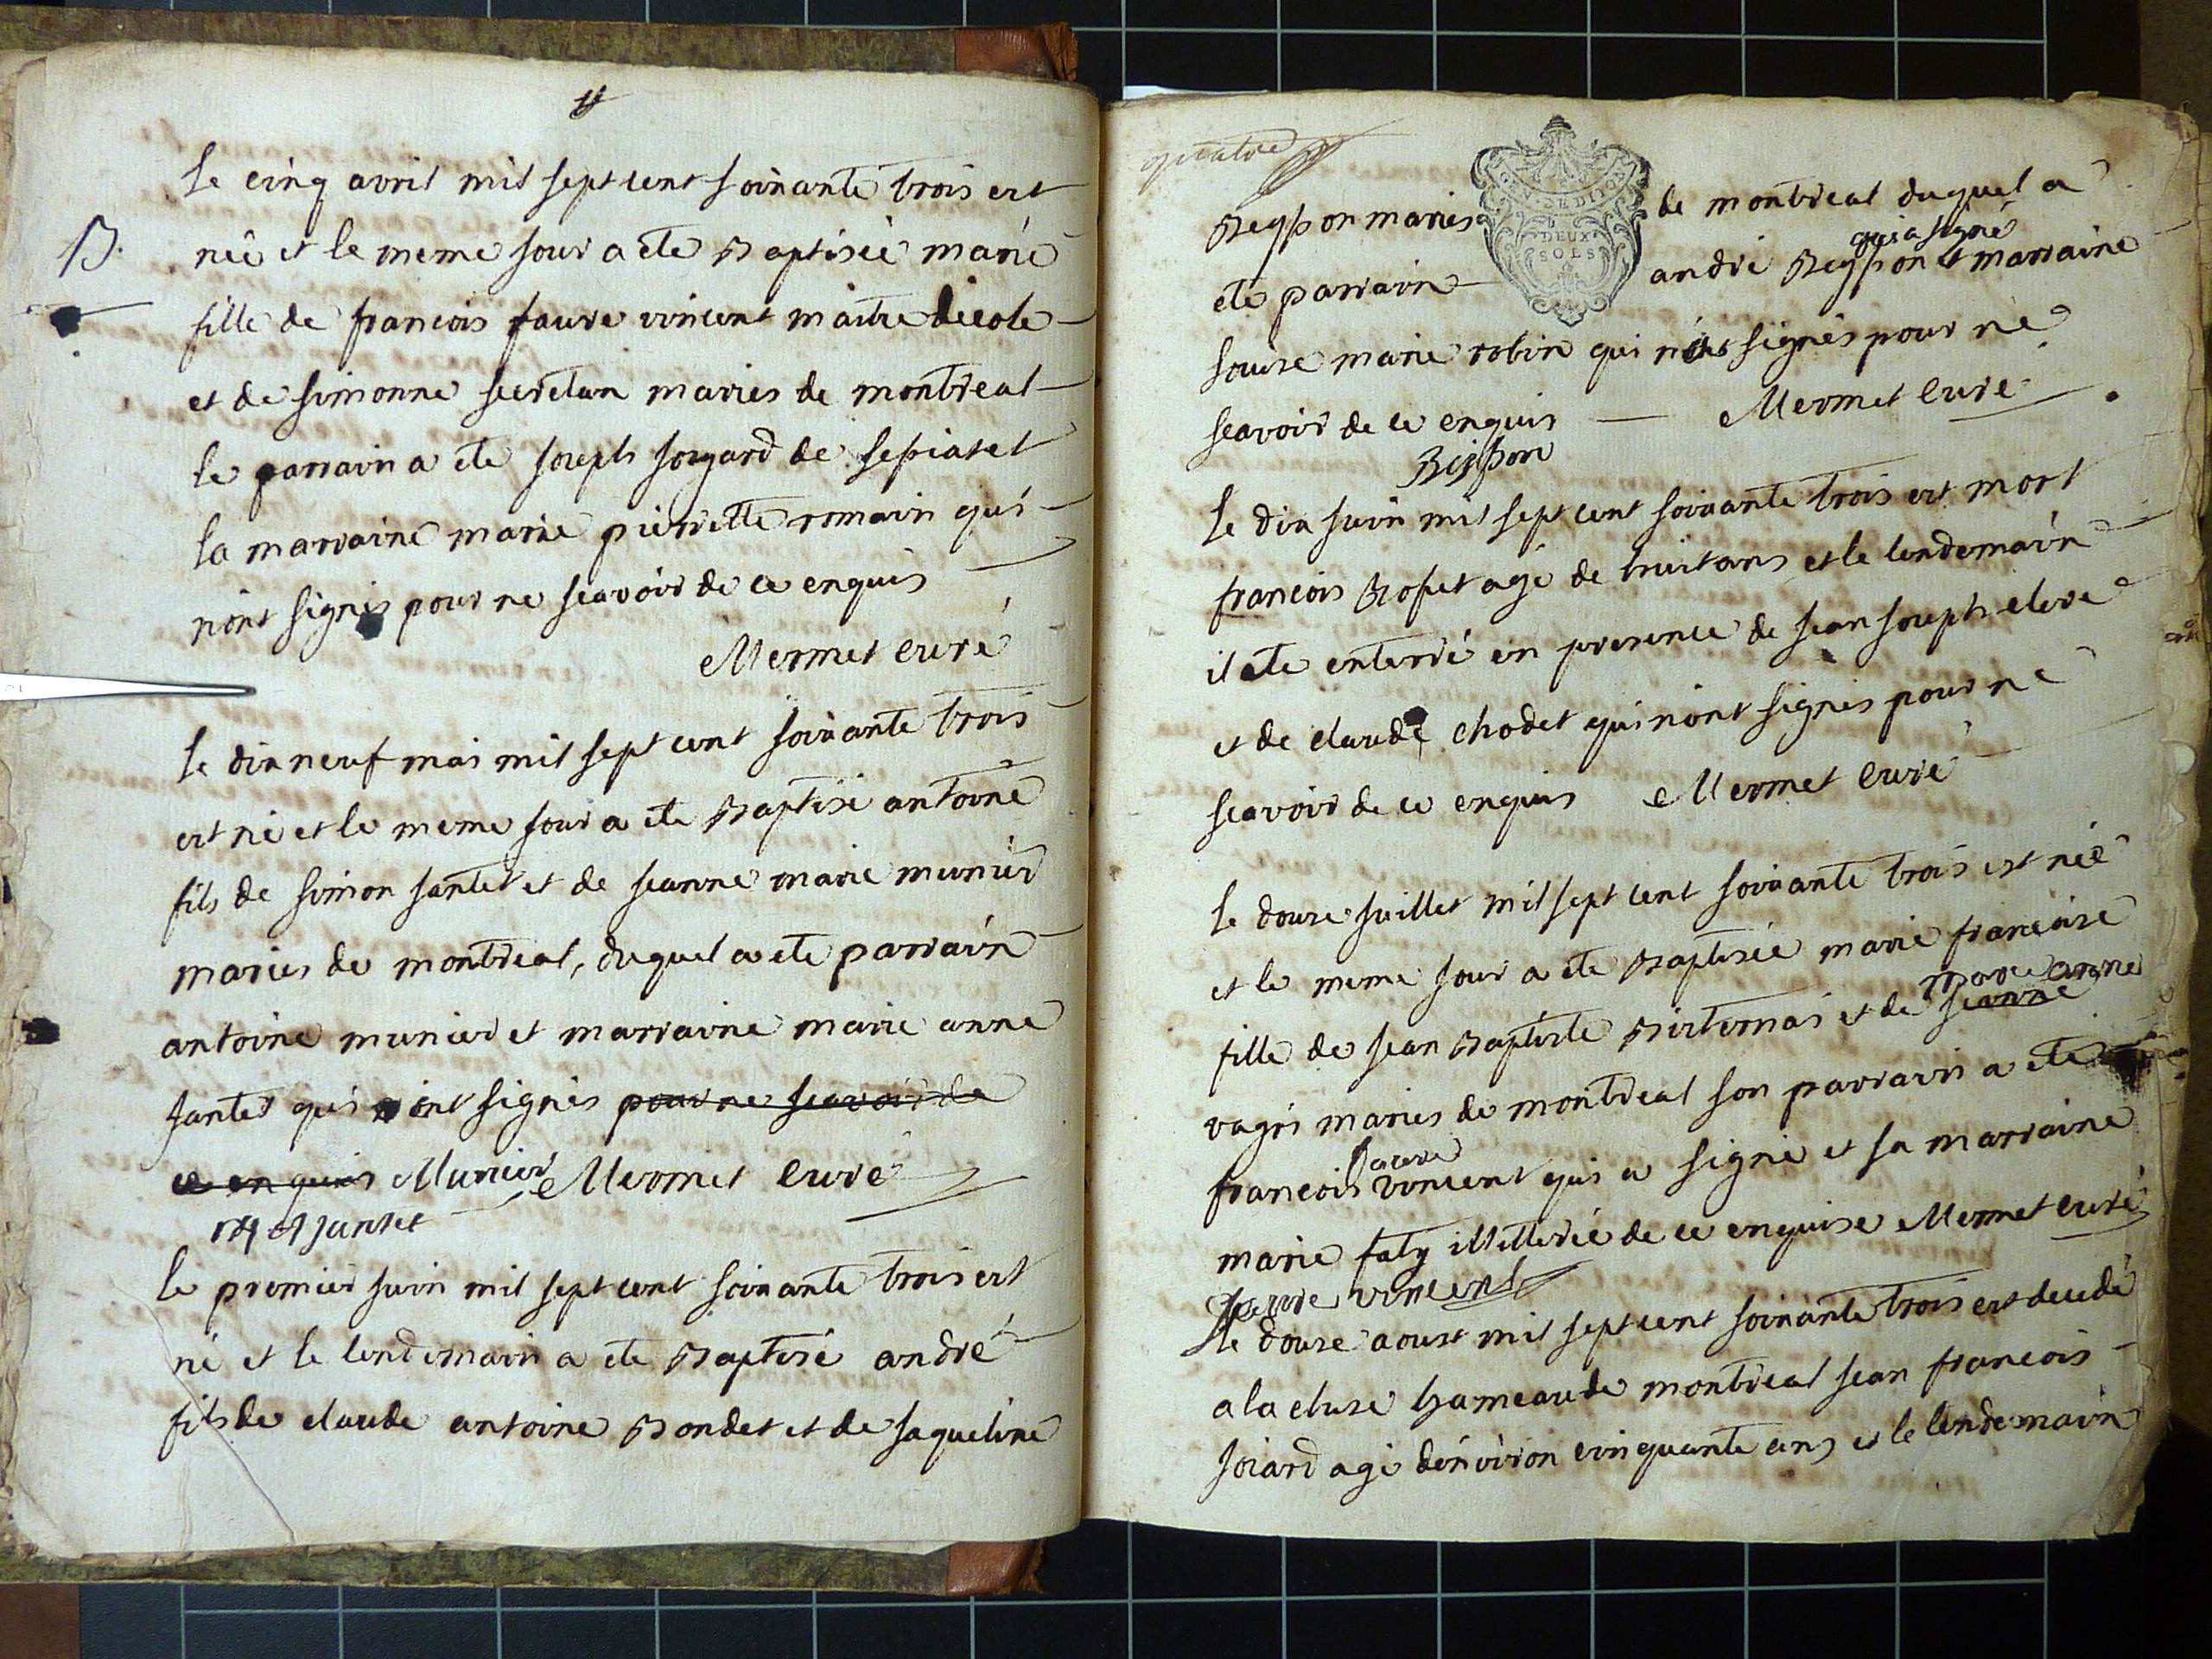 B.
Le cinq avril mil sept cent soixante trois est
née et le meme jour a ete Baptisée marie
fille de francois faure vincent maitre decole
et de simonne secretan maries de montreal
le parrain a ete joseph joyard de
la marraine marie pierrette romain qui
n'ont signés pour ne scavoir de ce enquis
Mermet curé
le dix neuf mai mil sept cent soixante trois
est né et le meme jour a ete Baptisé antoine
fils de simon jantet et de jeanne marie munier
maries de montreal, duquel a ete parrain
antoine munier et marraine marie anne
jantet qui ont signés pour ne scavoir de
ce enquis Munier Mermet curé
M A jantet
le premier juin mil sept cent soixante trois est
né et le lendemain a ete Baptisé andré
fils de claude antoine Bondet et de jaqueline
quatre
DEUX
SOLS
Beysson maries de montreal duquel a
qui a signé
ete parrain andré Beysson et marraine
louise marie robin qui n'a signés pour ne
scavoir de ce enquis Mermet curé
Beysson
le dix juin mil sept cent soixante trois est mort
francois agé de huit ans et le lendemain
il ete enterré en presence de jean joseph clerc
et de claude chodet qui n'ont signés pour ne
scavoir de ce enquis Mermet curé
le douse juillet mil sept cent soixante trois est née
et le meme jour a ete Baptisée marie francoise
marie anne
fille de jean Baptiste et de jeanne
maries de montreal son parrain a ete
faure
francois vincent qui a signé et sa marraine
marie faty illetterée de ce enquise Mermet curé
faure vincent
le douse aoust mil sept cent soixante trois est decedé
a la cluse hameau de montreal jean francois
joiard agé d'environ cinquante ans et le lendemain